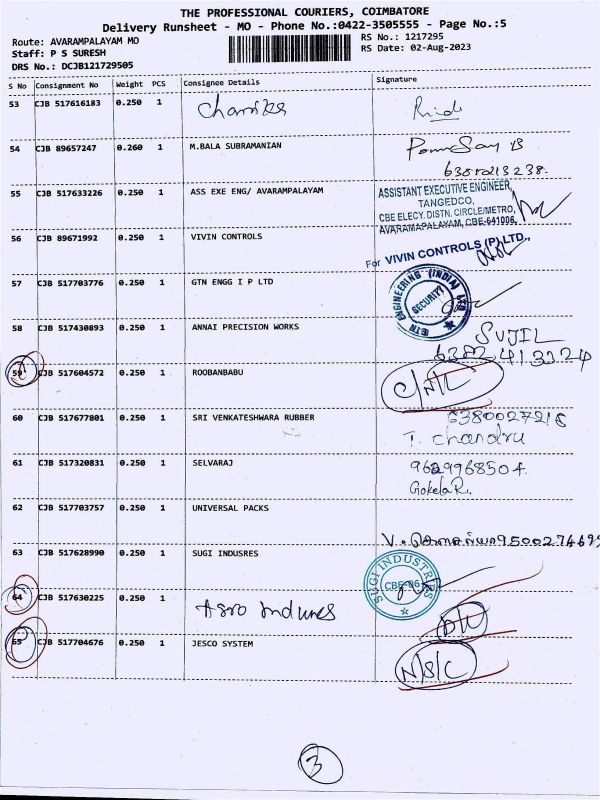 THE PROFESSIONAL COURIERS, COIMBATORE
Delivery Runsheet - MO - Phone No.:0422-3505555 - Page No.:5
Route: AVARAMPALAYAM MO
RS No.: 1217295
Staff: P S SURESH
RS Date: 02-Aug-2023
DRS No.: DCJB121729505
S No Consignment No Weight PCS Consignee Details Signature
53 CJB 517616183 0.250 1
54 CJB 89657247 0.260 1 M.BALA SUBRAMANIAN
6381213238.
55 CJB 517633226 0.250 1 ASS EXE ENG/ AVARAMPALAYAM
ASSISTANT EXECUTIVE ENGINEER,
TANGEDCO,
CBE ELECY. DISTN. CIRCLE/METRO,
AVARAMAPALAYAM, CBE-641006.
56 CJB 89671992 0.250 1 VIVIN CONTROLS
For VIVIN CONTROLS (P) LTD.,
57 CJB 517703776 0.250 1 GTN ENGG I P LTD
GTN ENGINEERING (INDIA) LTD
SECURITY
58 CJB 517430893 0.250 1 ANNAI PRECISION WORKS
SUJIL
6382413224
59 CJB 517604572 0.250 1 ROOBANBABU
60 CJB 517677801 0.250 1 SRI VENKATESHWARA RUBBER
6380027216
T. chandru
61 CJB 517320831 0.250 1 SELVARAJ
9629968504.
Gokela R.
62 CJB 517703757 0.250 1 UNIVERSAL PACKS
63 CJB 517628990 0.250 1 SUGI INDUSRES
SUGI INDUSTRIES
CBE-06
64 CJB 517630225 0.250 1
65 CJB 517704676 0.250 1 JESCO SYSTEM
N/S/C
3